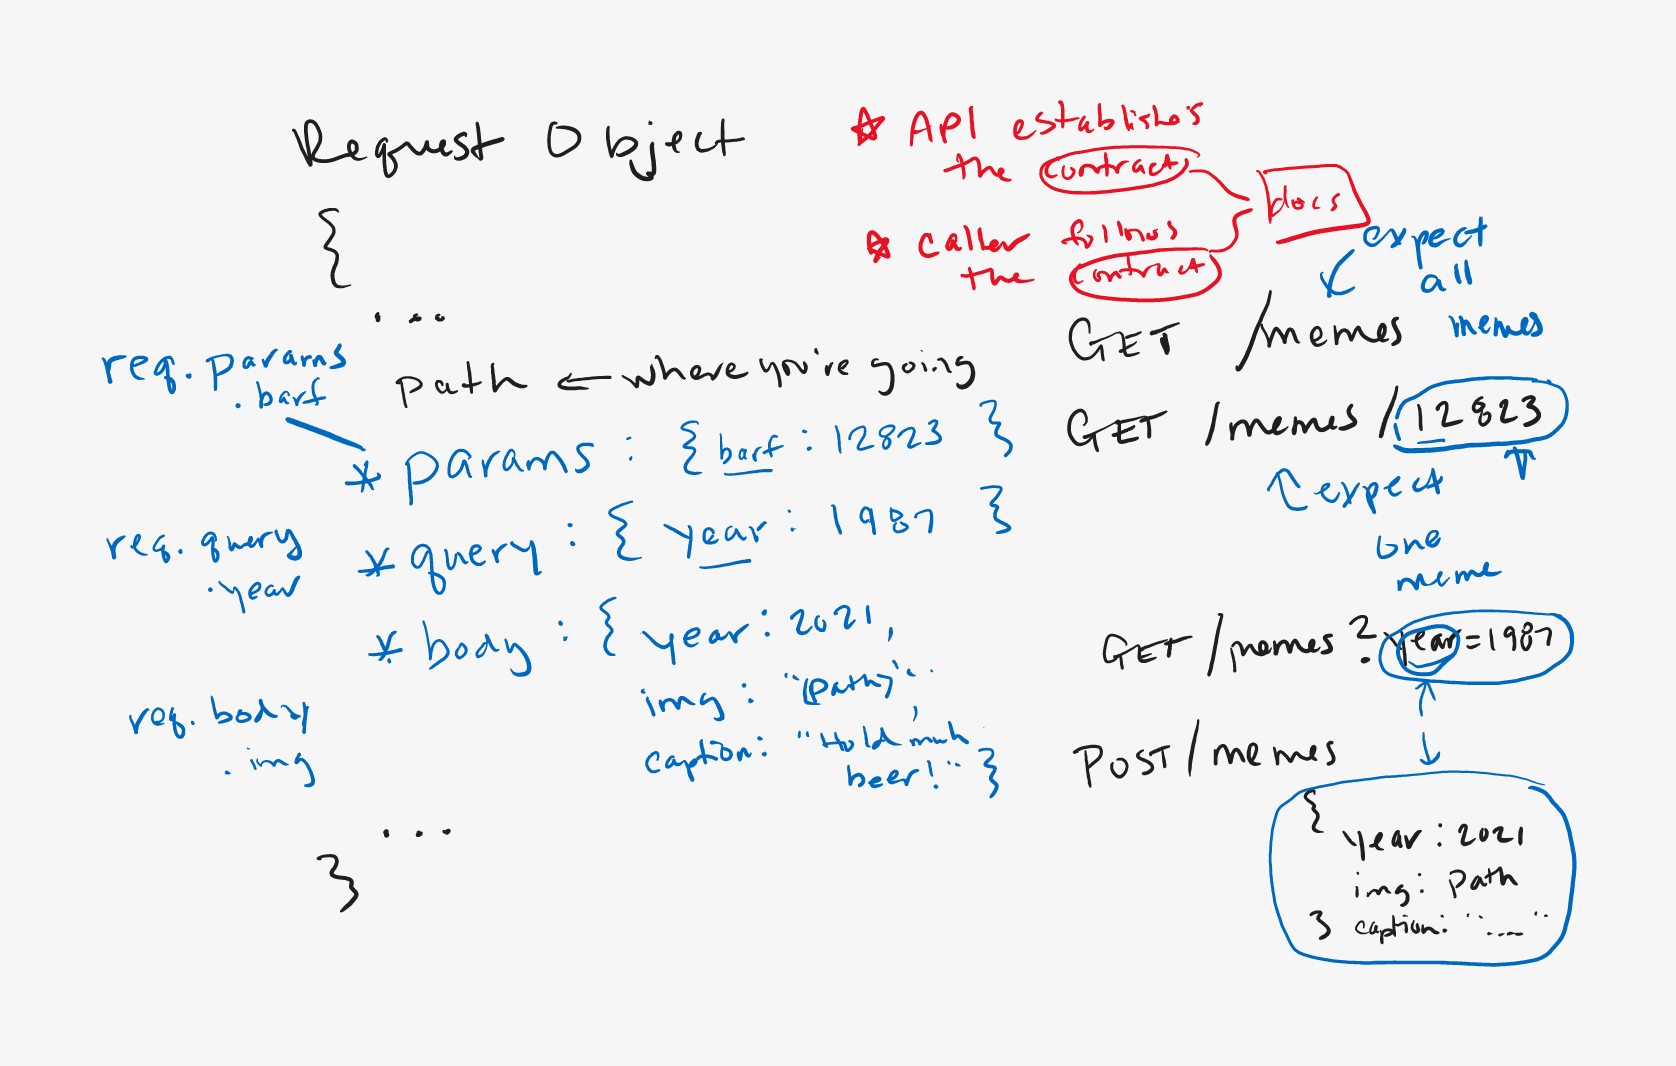 Request Object
{
...
path ← where you're going
req.params
.barf
* params : { barf : 12823 }
req.query
.year
* query : { year : 1987 }
* body : { year : 2021,
img : "(path)",
caption : "Hold muh
beer!" }
req.body
.img
...
}
☆ API establishes
the contract
☆ caller follows
the contract
docs
expect
all
memes
GET /memes
GET /memes/12823
expect
one
meme
GET /memes?year=1987
POST /memes
{
year : 2021
img : path
} caption : "....."